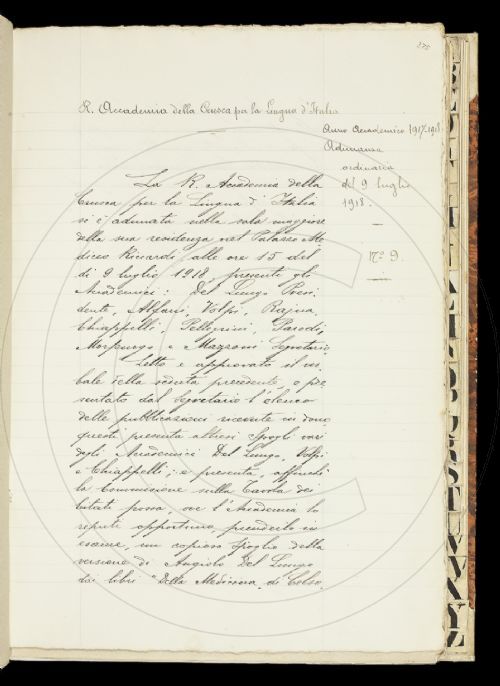 275
R. Accademia della Crusca per la Lingua d'Italia
Anno Accademico 1917-1918
Adunanza
ordinaria
del 9 luglio
1918.
N.º 9.
La R. Accademia della
Crusca per la Lingua d'Italia
si è adunata nella sala maggiore
della sua residenza nel Palazzo Me
diceo Riccardi alle ore 15 del
dì 9 luglio 1918, presenti gli
Accademici: Del Lungo Presi
dente, Alfani, Volpi, Rajna,
Chiappelli, Pellegrini, Parodi,
Morpurgo e Mazzoni Segretario.
Letto e approvato il ver
bale della seduta precedente, e pre
sentato dal Segretario l'elenco
delle pubblicazioni ricevute in dono,
questi presenta altresì spogli vari
degli Accademici Del Lungo, Volpi
e Chiappelli; e presenta, affinché
la Commissione sulla Tavola dei
citati possa, ove l'Accademia lo
reputi opportuno, prenderlo in
esame, un copioso spoglio della
versione di Angiolo Del Lungo
dei libri "Della Medicina" di Celso,